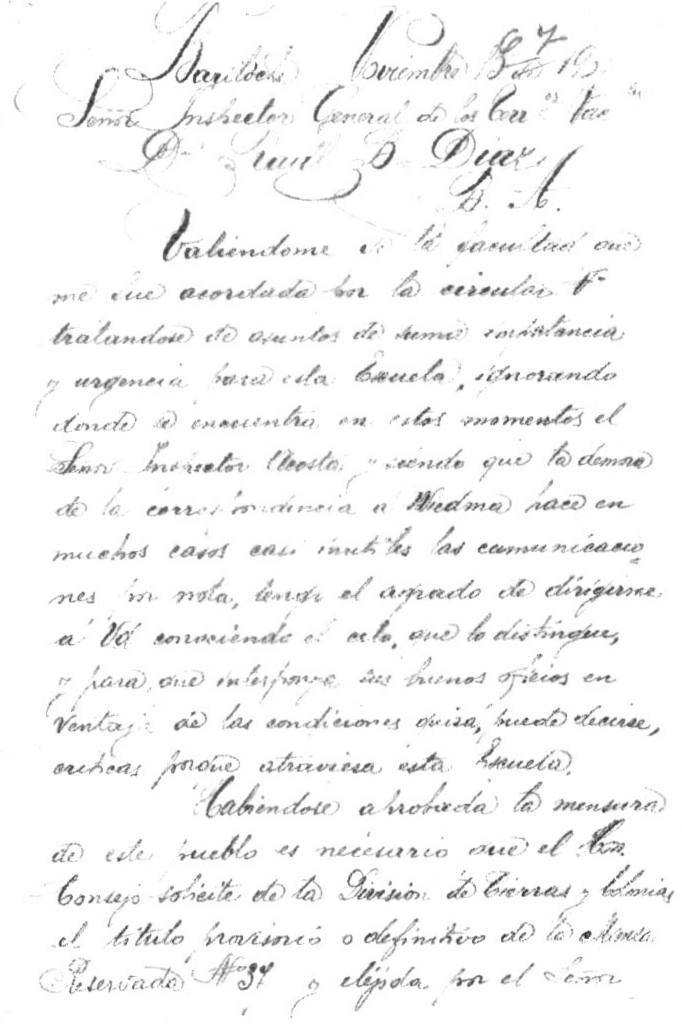 Bariloche Noviembre 13 de 19
Señor Inspector General de los Terr.os Nac
Dn Raúl B Diaz
B. A.
Valiéndome de la facultad que
me fue acordada por la circular
tratandose de asuntos de suma importancia
y urgencia para esta Escuela, ignorando
donde se encuentra en estos momentos el
Señor Inspector Acosta, y siendo que la demora
de la correspondencia á Viedma hace en
muchos casos casi inutiles las comunicacio
nes por nota, tengo el agrado de dirigirme
á Vd conociendo el celo, que lo distingue,
y para que interponga sus buenos oficios en
ventaja de las condiciones quizá, puede decirse,
criticas porque atraviesa esta Escuela.
Habiéndose aprobada la mensura
de este pueblo es necesario que el Hon.
Consejo solicite de la División de Tierras y Colonias
el titulo provisorio o definitivo de la Manza
Reservada Nº 37 y eléjida por el Señor